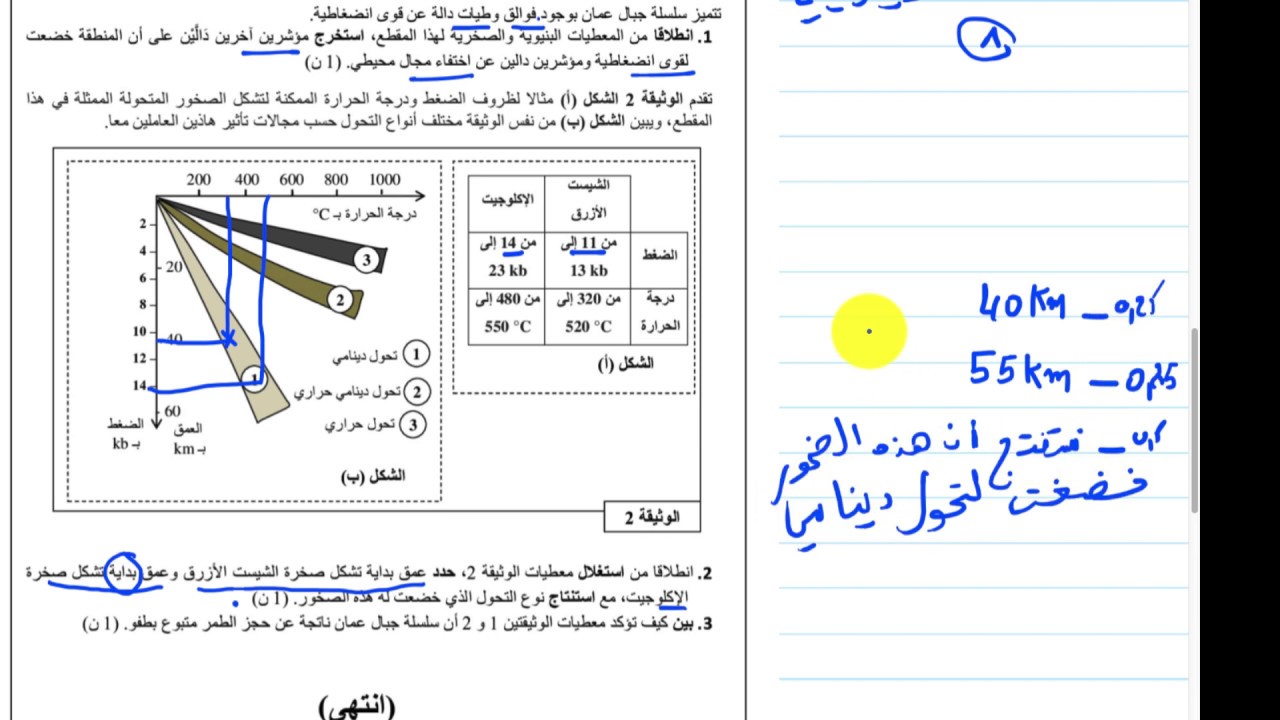 تتميز سلسلة جبال عمان بوجود فوالق وطيات دالة عن قوى انضغاطية.
1. انطلاقا من المعطيات البنيوية والصخرية لهذا المقطع، استخرج مؤشرين آخرين دَالَّيْن على أن المنطقة خضعت
لقوى انضغاطية ومؤشرين دالين عن اختفاء مجال محيطي. (1 ن)
تقدم الوثيقة 2 الشكل (أ) مثالا لظروف الضغط ودرجة الحرارة الممكنة لتشكل الصخور المتحولة الممثلة في هذا
المقطع، ويبين الشكل (ب) من نفس الوثيقة مختلف أنواع التحول حسب مجالات تأثير هاذين العاملين معا.
الشيست الأزرق
الإكلوجيت
الضغط
من 11 إلى 13 kb
من 14 إلى 23 kb
درجة الحرارة
من 320 إلى 520 °C
من 480 إلى 550 °C
الشكل (أ)
200 400 600 800 1000
درجة الحرارة بـ °C
2
4
20
6
8
10
40
12
14
60
الضغط بـ kb
العمق بـ km
3
2
1
1 تحول دينامي
2 تحول دينامي حراري
3 تحول حراري
الشكل (ب)
الوثيقة 2
2. انطلاقا من استغلال معطيات الوثيقة 2، حدد عمق بداية تشكل صخرة الشيست الأزرق وعمق بداية تشكل صخرة
الإكلوجيت، مع استنتاج نوع التحول الذي خضعت له هذه الصخور. (1 ن)
3. بين كيف تؤكد معطيات الوثيقتين 1 و 2 أن سلسلة جبال عمان ناتجة عن حجز الطمر متبوع بطفو. (1 ن)
(انتهى)
1
40 Km – 0,25
55 Km – 0,25
نستنتج أن هذه الصخور
خضعت لتحول ديناميا